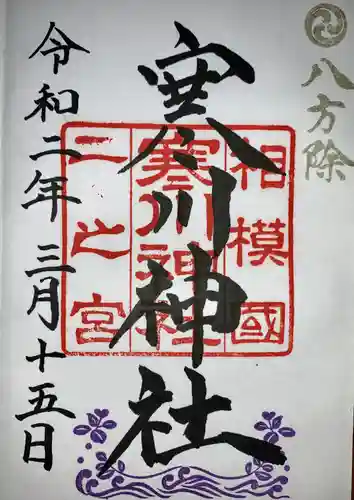 八方除
相模國
寒川神社
二之宮
寒川神社
令和二年 三月十五日